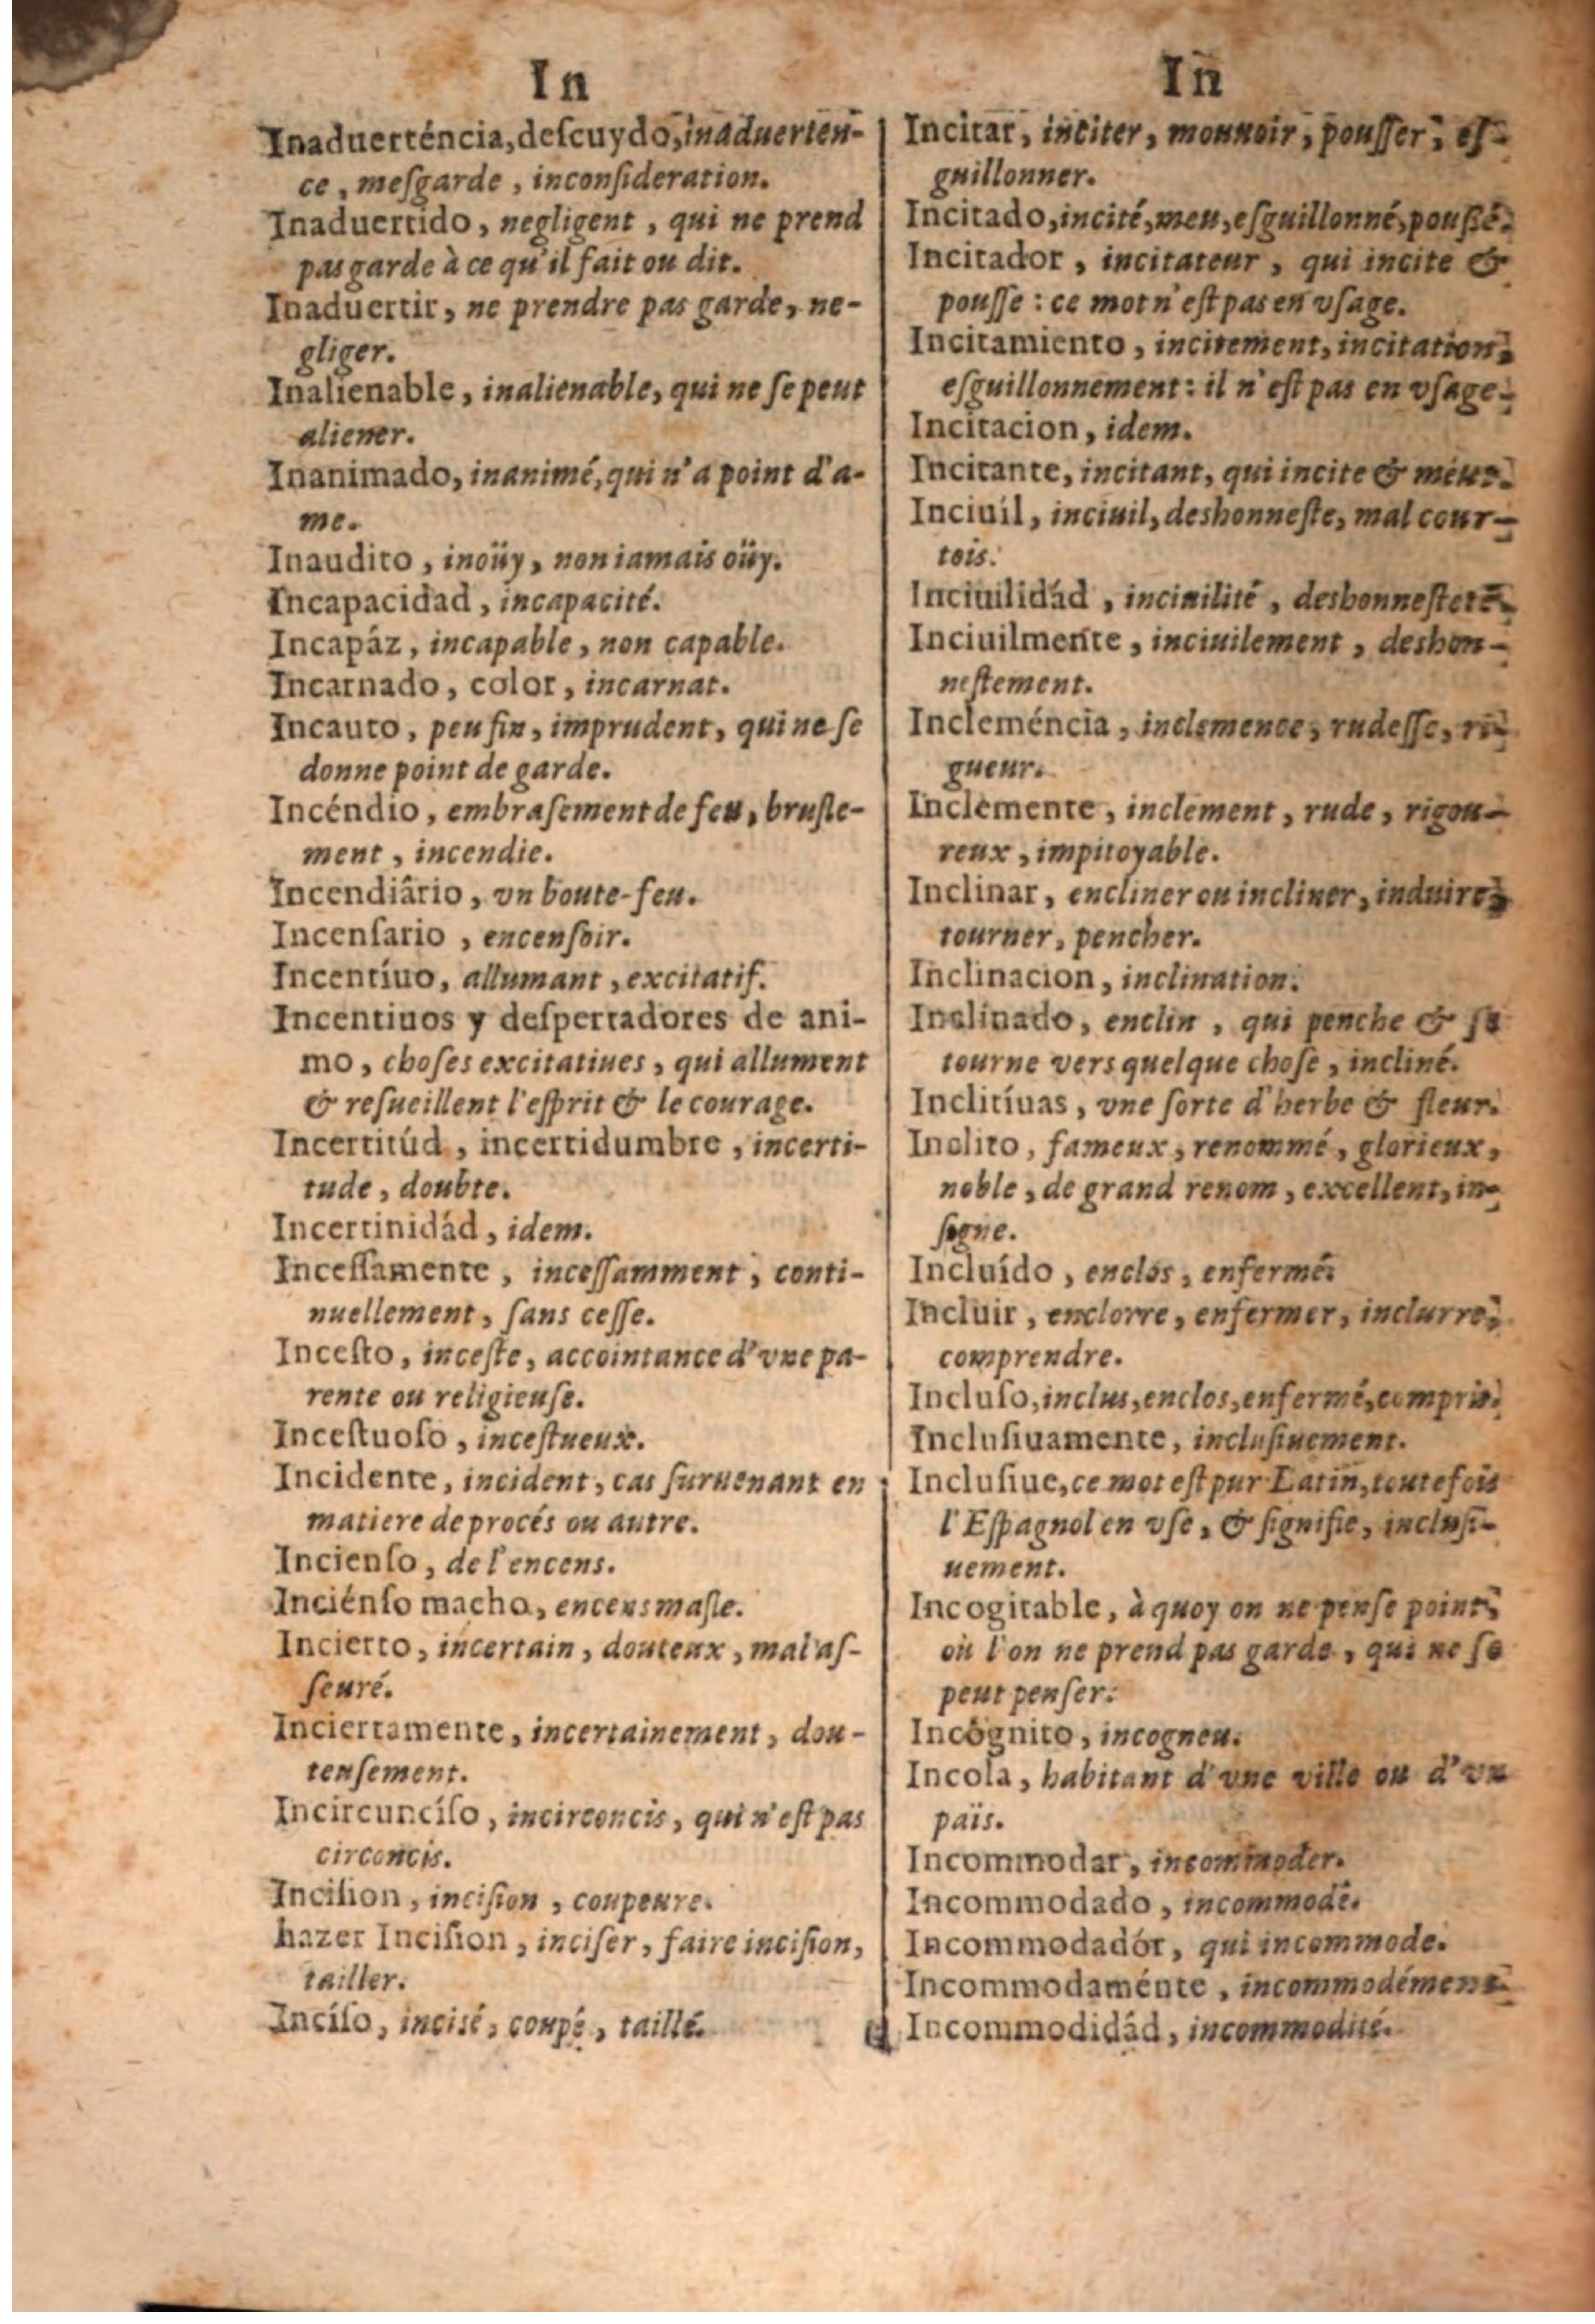 In
Inaduerténcia, deſcuydo, inaduerten-
ce, meſgarde, inconſideration.
Inaduertido, negligent, qui ne prend
pas garde à ce qu'il fait ou dit.
Inaduertir, ne prendre pas garde, ne-
gliger.
Inalienable, inalienable, qui ne ſe peut
aliener.
Inanimado, inanimé, qui n'a point d'a-
me.
Inaudito, inoüy, non iamais oüy.
Incapacidad, incapacité.
Incapáz, incapable, non capable.
Incarnado, color, incarnat.
Incauto, peu fin, imprudent, qui ne ſe
donne point de garde.
Incéndio, embraſement de feu, bruſle-
ment, incendie.
Incendiârio, vn boute-feu.
Incenſario, encenſoir.
Incentíuo, allumant, excitatif.
Incentiuos y deſpertadores de ani-
mo, choſes excitatiues, qui allument
& reſueillent l'eſprit & le courage.
Incertitúd, incertidumbre, incerti-
tude, doubte.
Incertinidád, idem.
Inceſſamente, inceſſamment, conti-
nuellement, ſans ceſſe.
Inceſto, inceſte, accointance d'vne pa-
rente ou religieuſe.
Inceſtuoſo, inceſtueux.
Incidente, incident, cas ſuruenant en
matiere de procés ou autre.
Incienſo, de l'encens.
Inciénſo macho, encens maſle.
Incierto, incertain, douteux, mal aſ-
ſeuré.
Inciertamente, incertainement, dou-
teuſement.
Incircuncíſo, incirconcis, qui n'eſt pas
circoncis.
Inciſion, inciſion, coupeure.
hazer Inciſion, inciſer, faire inciſion,
tailler.
Incíſo, incisé, coupé, taillé.
In
Incitar, inciter, mouuoir, pouſſer, eſ-
guillonner.
Incitado, incité, meu, eſguillonné, pouſsé.
Incitador, incitateur, qui incite &
pouſſe : ce mot n'eſt pas en vſage.
Incitamiento, incitement, incitation,
eſguillonnement : il n'eſt pas en vſage.
Incitacion, idem.
Incitante, incitant, qui incite & meut.
Inciuil, inciuil, deshonneſte, mal cour-
tois.
Inciuilidád, inciuilité, deshonneſteté.
Inciuilmente, inciuilement, deshon-
neſtement.
Incleméncia, inclemence, rudeſſe, ri-
gueur.
Inclemente, inclement, rude, rigou-
reux, impitoyable.
Inclinar, encliner ou incliner, induire,
tourner, pencher.
Inclinacion, inclination.
Inclinado, enclin, qui penche & ſe
tourne vers quelque choſe, incliné.
Inclitíuas, vne ſorte d'herbe & fleur.
Inclito, fameux, renommé, glorieux,
noble, de grand renom, excellent, in-
ſigne.
Incluído, enclos, enfermé.
Incluir, enclorre, enfermer, inclurre,
comprendre.
Incluſo, inclus, enclos, enfermé, compris.
Incluſiuamente, incluſiuement.
Incluſiue, ce mot eſt pur Latin, toutefois
l'Eſpagnol en vſe, & ſignifie, incluſi-
uement.
Incogitable, à quoy on ne penſe point,
où l'on ne prend pas garde, qui ne ſe
peut penſer.
Incógnito, incogneu.
Incola, habitant d'vne ville ou d'vn
païs.
Incommodar, incommoder.
Incommodado, incommodé.
Incommodadór, qui incommode.
Incommodaménte, incommodément.
Incommodidád, incommodité.